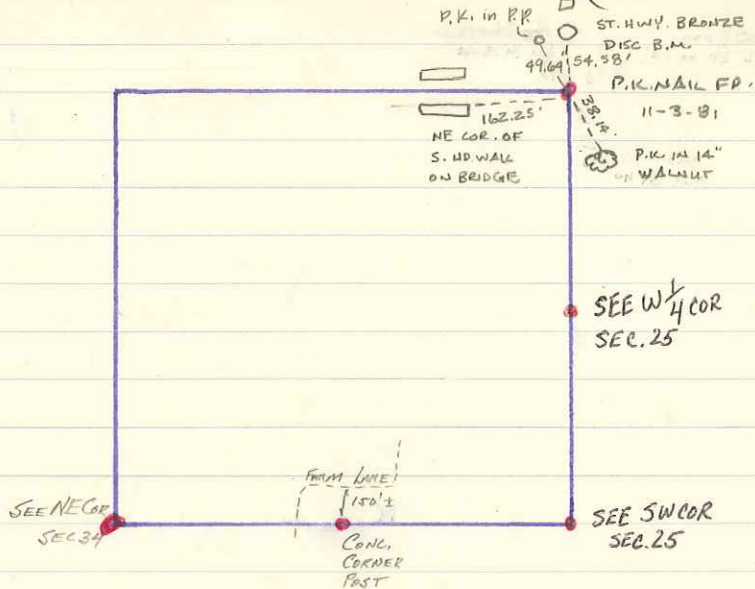 P.K. in P.P.
ST. HWY. BRONZE
DISC B.M.
49.64'
54.58'
P.K. NAIL FD.
11-3-81
162.25'
38.14
NE COR. OF
S. HD. WALL
ON BRIDGE
P.K. IN 14"
WALNUT
SEE W 1/4 COR
SEC. 25
FARM LANE
150' ±
SEE NE COR
SEC 34
CONC.
CORNER
POST
SEE SW COR
SEC. 25